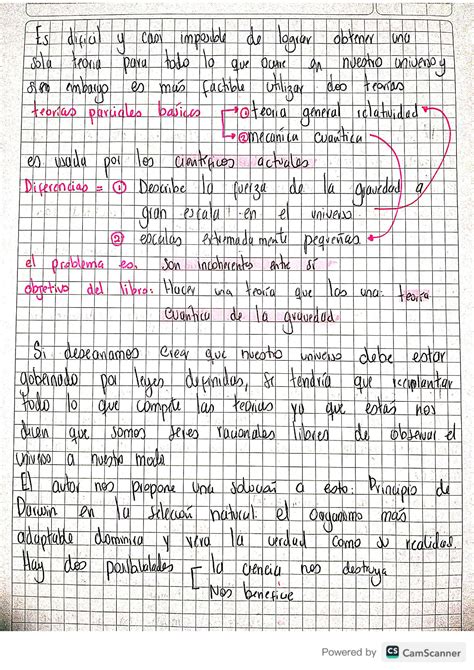 Es dificil y casi imposible de lograr obtener una
sola teoria para todo lo que ocurre en nuestro universo y
sin embargo es mas factible utilizar dos teorías
teorías parciales basicas → ① teoria general relatividad
→ ② mecanica cuantica
es usada por los cientificos actuales
Diferencias = ① Describe la fuerza de la gravedad a
gran escala en el universo
② escalas extremadamente pequeñas
el problema es: son incoherentes entre sí
objetivo del libro: Hacer una teoría que los una: teoria
cuantica de la gravedad
Si deseariamos creer que nuestro universo debe estar
gobernado por leyes definidas, se tendria que
todo lo que las teorias ya que estas nos
dicen que somos seres racionales libres de observar el
universo a nuestro modo
El autor nos propone una solución a esto: Principio de
Darwin en la selección natural: el organismo mas
adaptable domina y vera la verdad como su realidad.
Hay dos posibilidades [ la ciencia nos destruya
Nos beneficie
Powered by CS CamScanner